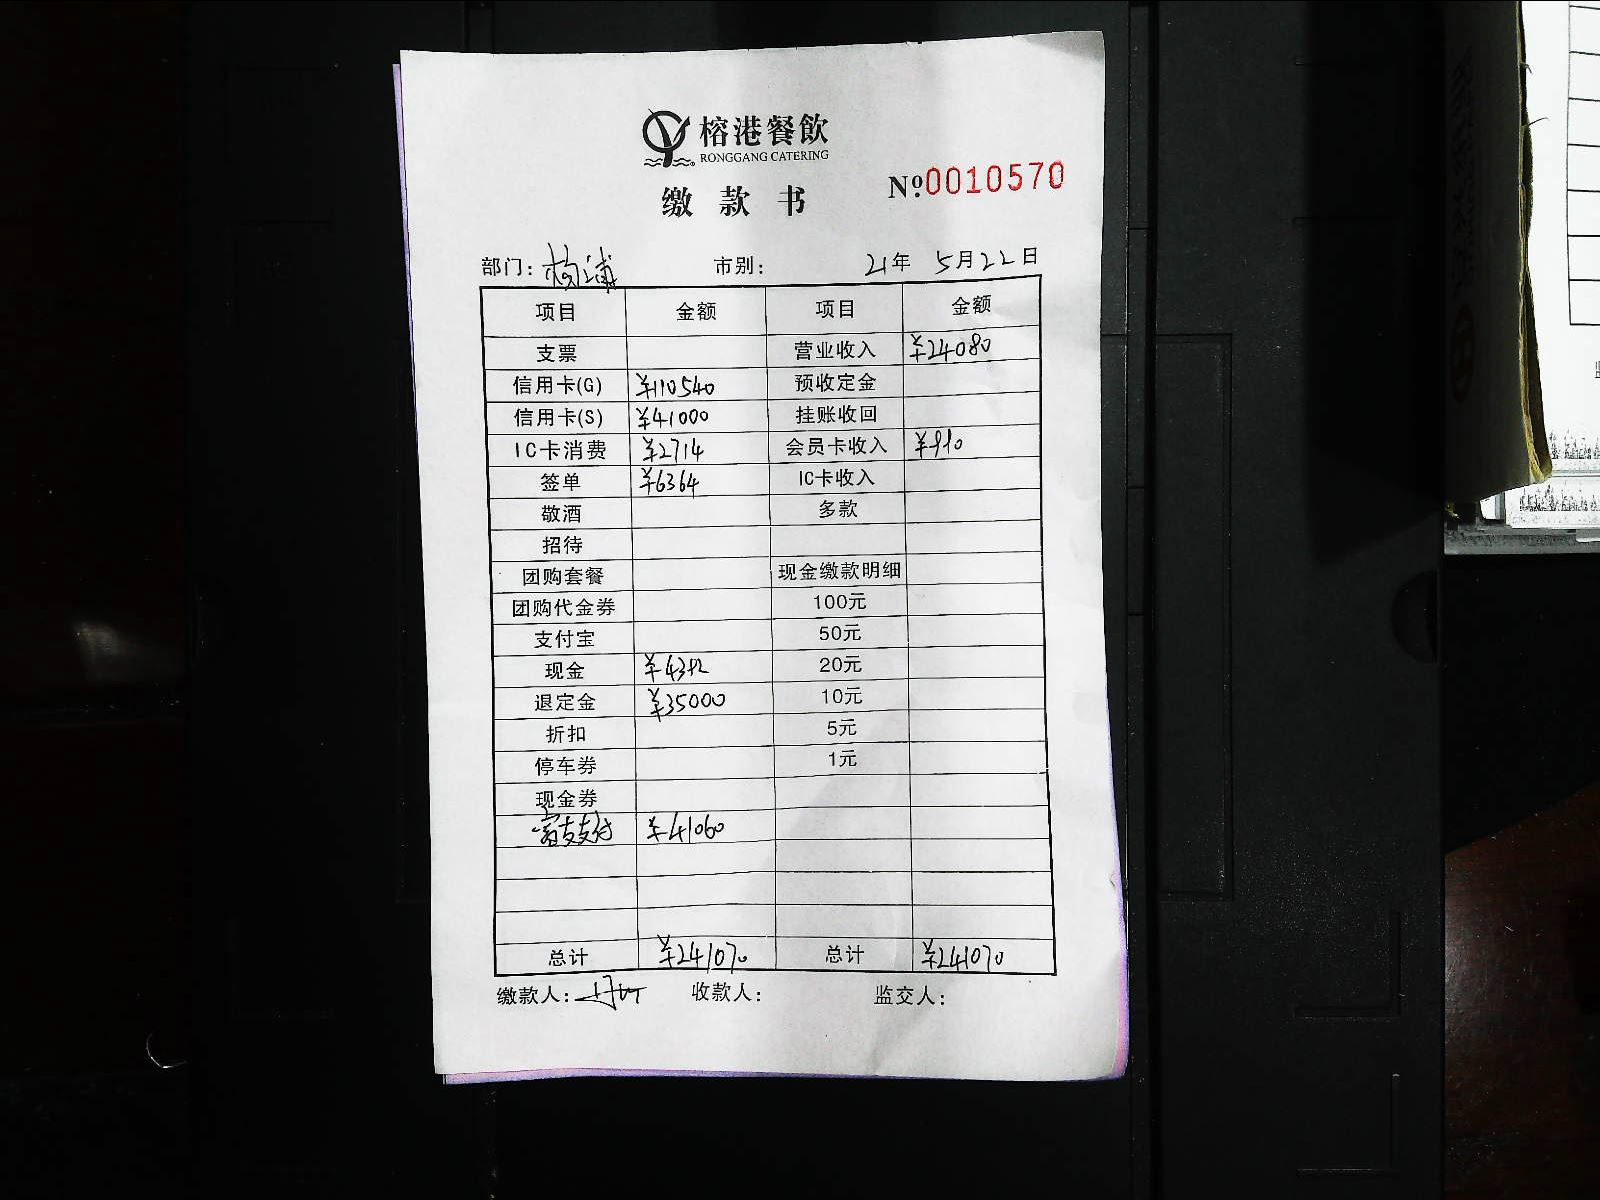 榕港餐飲
RONGGANG CATERING
缴款书
Nº 0010570
部门：杨浦 市别： 21年 5月22日
项目 金额 项目 金额
支票 营业收入 ¥24080
信用卡(G) ¥110540 预收定金
信用卡(S) ¥41000 挂账收回
IC卡消费 ¥2714 会员卡收入 ¥990
签单 ¥6364 IC卡收入
敬酒 多款
招待
团购套餐 现金缴款明细
团购代金券 100元
支付宝 50元
现金 ¥4392 20元
退定金 ¥35000 10元
折扣 5元
停车券 1元
现金券
富友支付 ¥41060
总计 ¥241070 总计 ¥241070
缴款人： 收款人： 监交人：